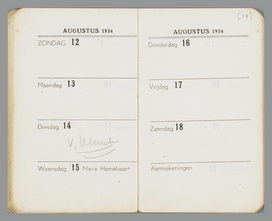 AUGUSTUS 1934
ZONDAG 12
Maandag 13
Dinsdag 14
Woensdag 15 Maria Hemelvaart
AUGUSTUS 1934
Donderdag 16
Vrijdag 17
Zaterdag 18
Aantekeningen